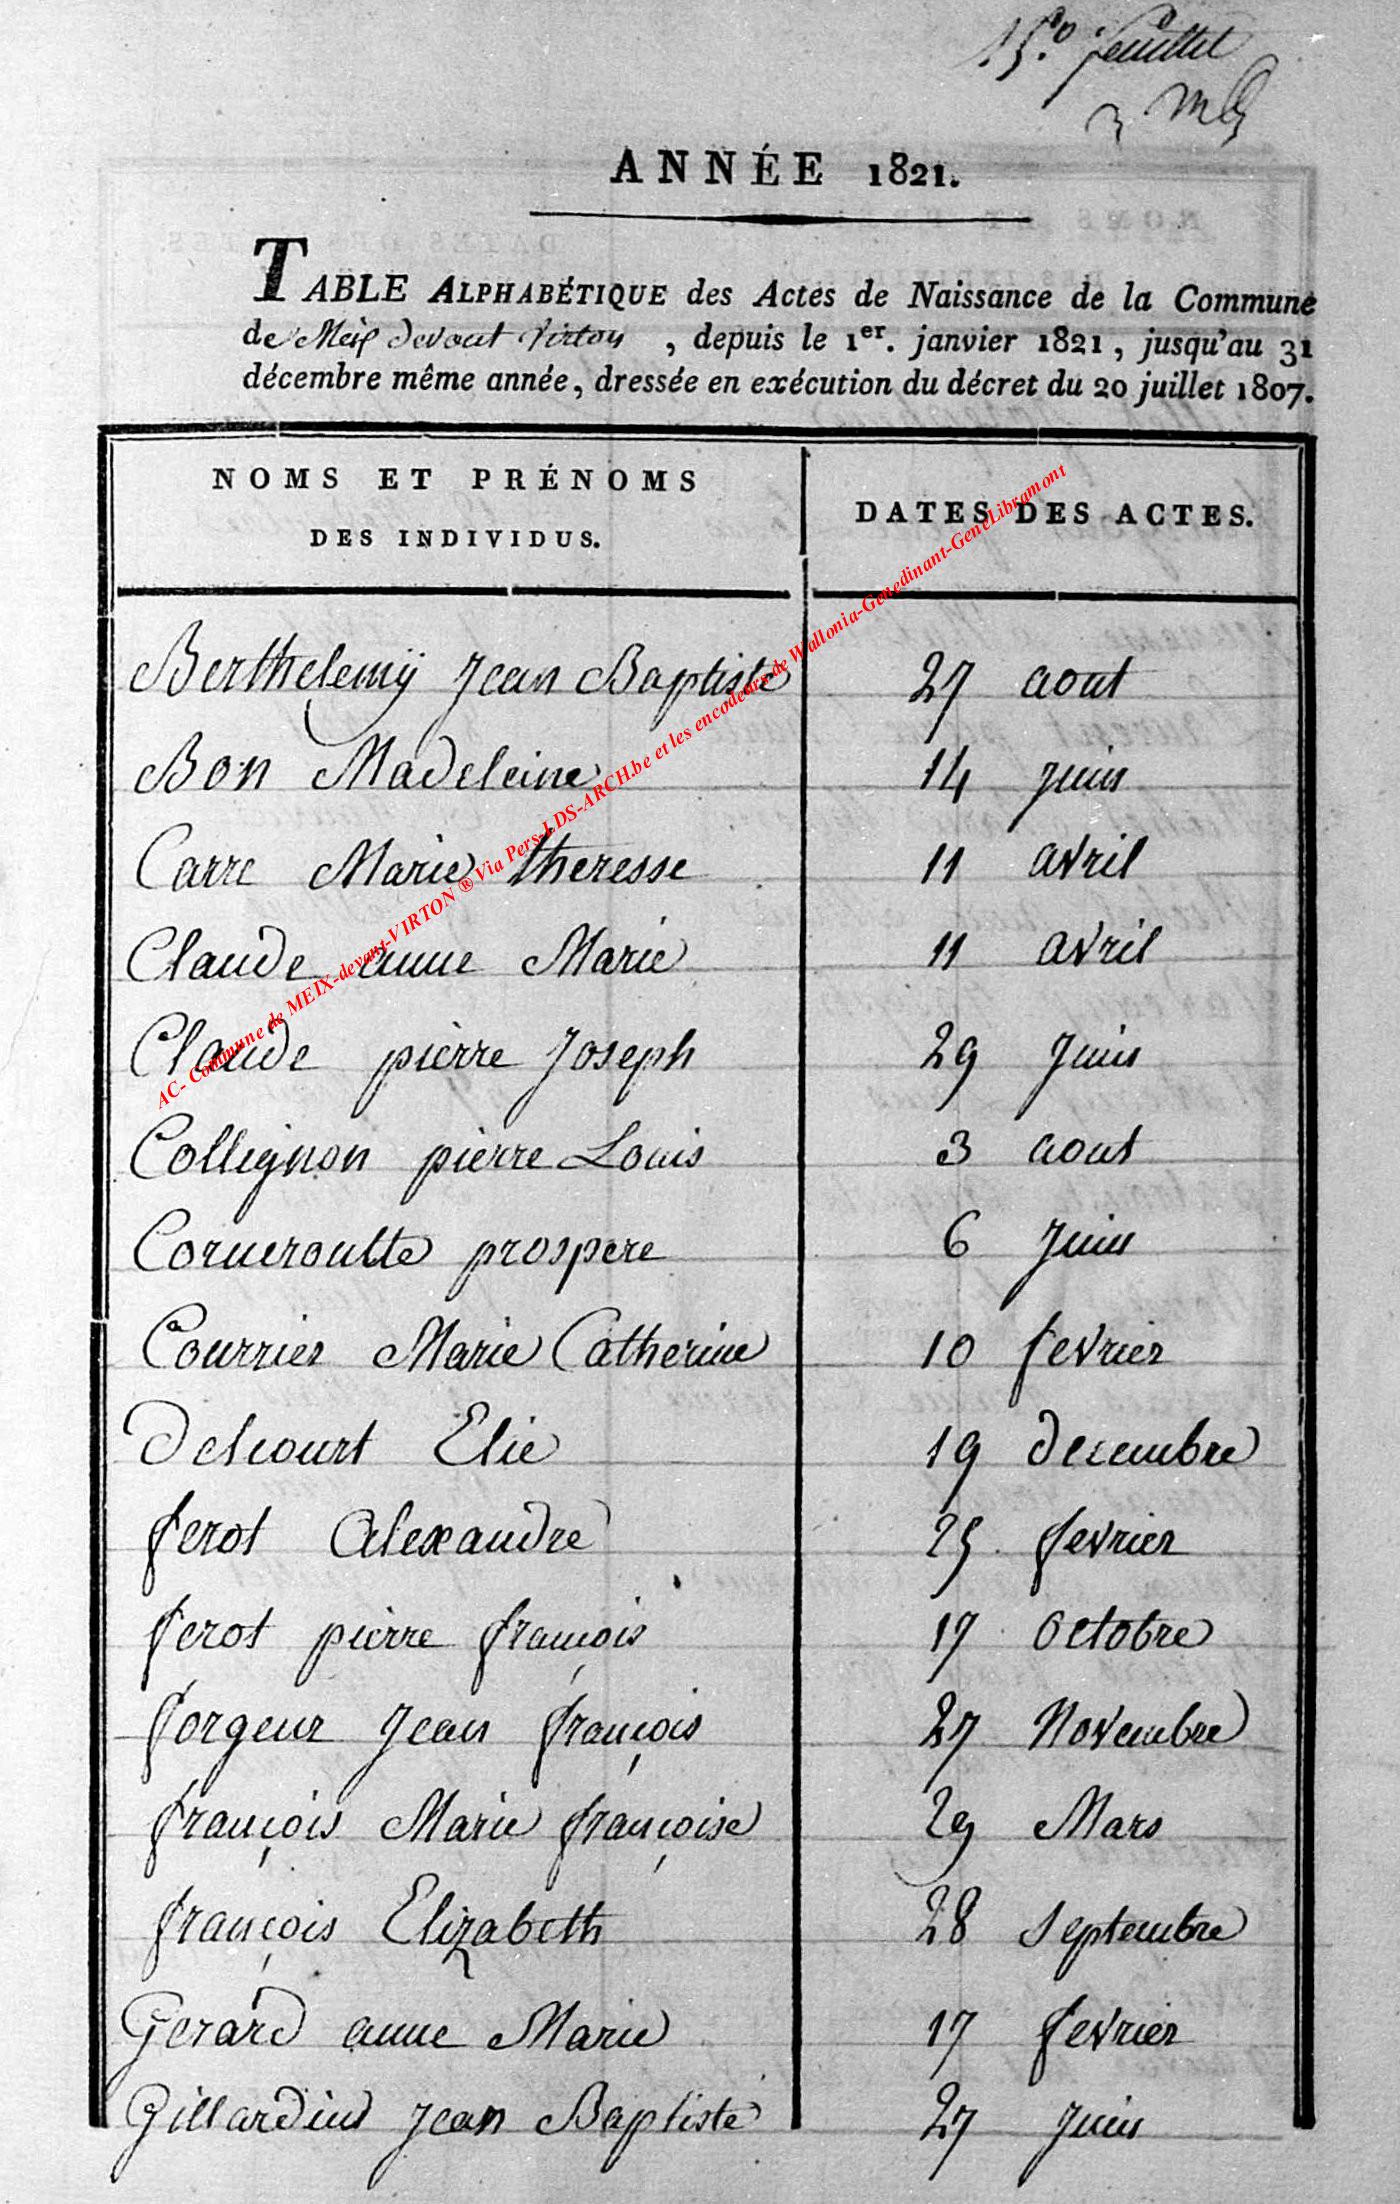 15.º feuillet
ANNÉE 1821.
TABLE ALPHABÉTIQUE des Actes de Naissance de la Commune
de Meix devant Virton , depuis le 1er. janvier 1821, jusqu'au 31
décembre même année, dressée en exécution du décret du 20 juillet 1807.
NOMS ET PRÉNOMS
DES INDIVIDUS.
DATES DES ACTES.
Berthelemÿ Jean Baptiste 27 aout
Bon Madeleine 14 juin
Carre Marie theresse 11 avril
Claude anne Marie 11 avril
Claude pierre Joseph 29 juin
Collignon pierre Louis 3 aout
Corneroutte prospere 6 juin
Courrier Marie Catherine 10 fevrier
Delcourt Elie 19 decembre
ferot Alexandre 25 fevrier
ferot pierre françois 17 octobre
forgeur Jean françois 27 Novembre
françois Marie françoise 29 Mars
françois Elizabeth 28 Septembre
Gerard anne Marie 17 fevrier
Gillardin Jean Baptiste 27 juin
AC- Commune de MEIX-devant-VIRTON ® Via Pers-LDS-ARCH.be et les encodeurs de Wallonia-Genedinant-GeneLibramont